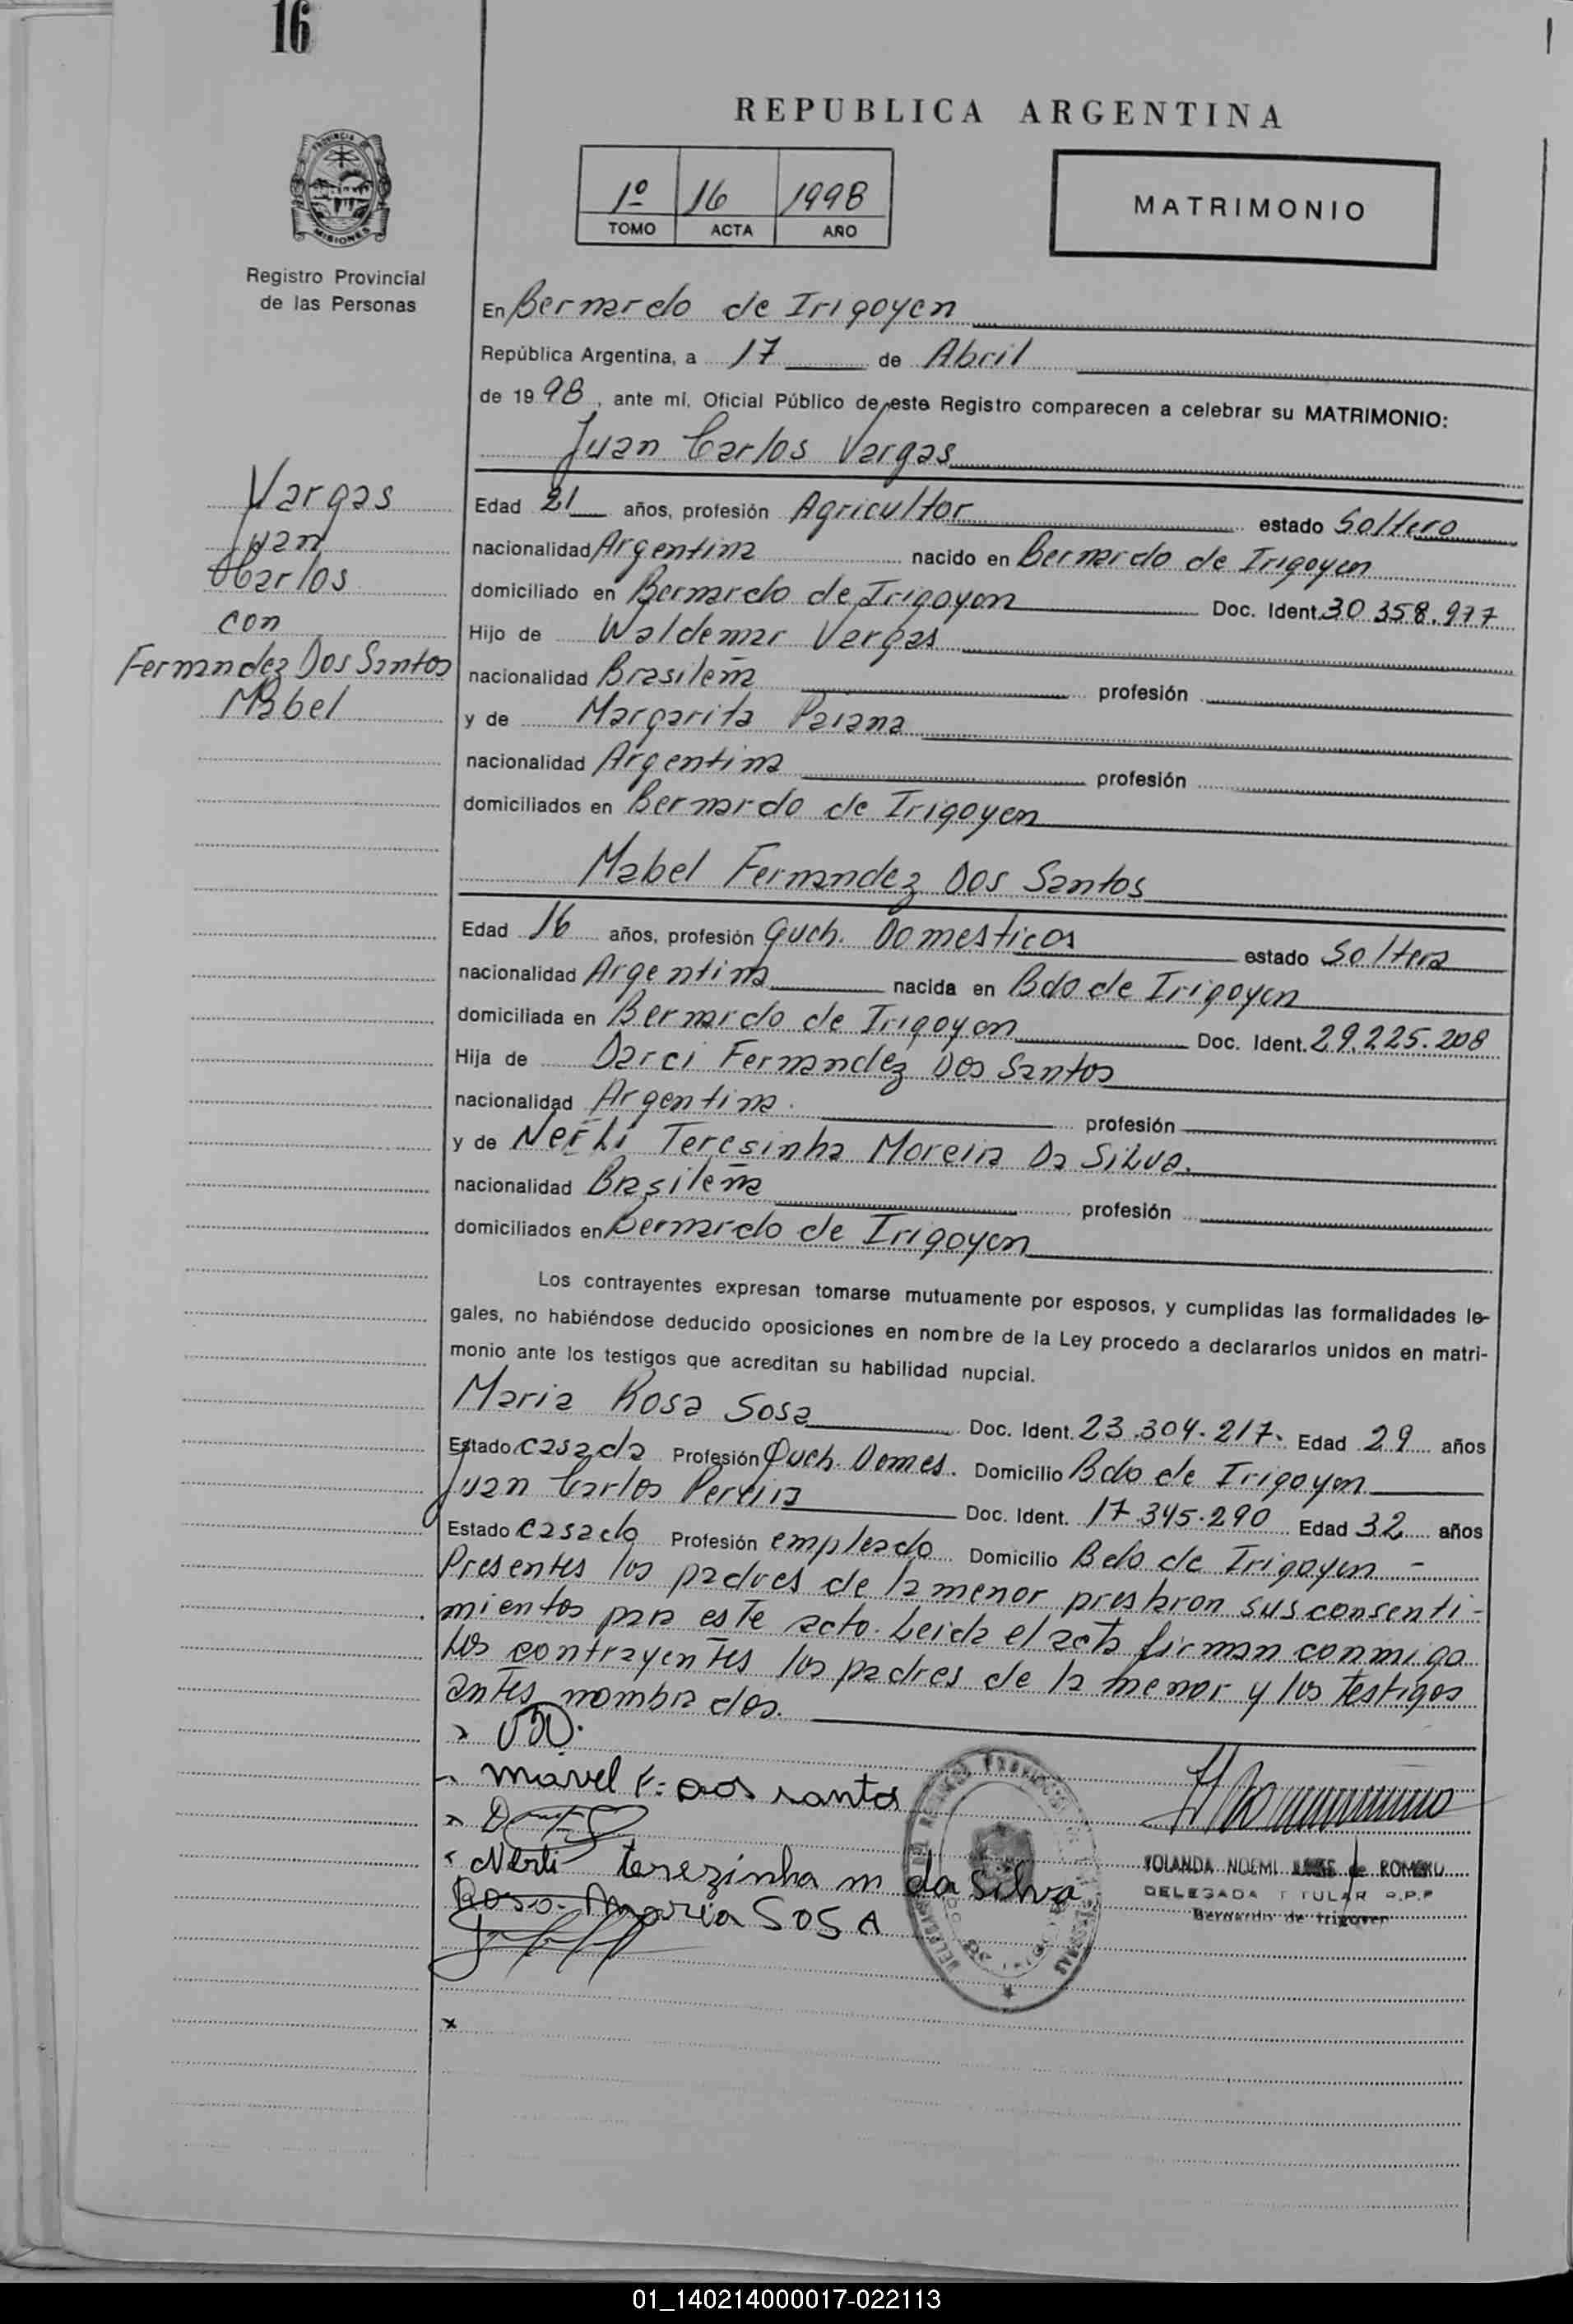 16
REPUBLICA ARGENTINA
1º 16 1998
TOMO ACTA AÑO
MATRIMONIO
PROVINCIA DE
MISIONES
Registro Provincial
de las Personas
En Bernardo de Irigoyen
República Argentina, a 17 de Abril
de 1998, ante mí, Oficial Público de este Registro comparecen a celebrar su MATRIMONIO:
Juan Carlos Vargas
Vargas
Juan
Carlos
con
Fernandez Dos Santos
Mabel
Edad 21 años, profesión Agricultor estado Soltero
nacionalidad Argentina nacido en Bernardo de Irigoyen
domiciliado en Bernardo de Irigoyen Doc. Ident. 30.358.977
Hijo de Waldemar Vargas
nacionalidad Brasileña profesión
y de Margarita Paiana
nacionalidad Argentina profesión
domiciliados en Bernardo de Irigoyen
Mabel Fernandez Dos Santos
Edad 16 años, profesión Queh. Domesticos estado Soltera
nacionalidad Argentina nacida en Bdo de Irigoyen
domiciliada en Bernardo de Irigoyen Doc. Ident. 29.225.208
Hija de Darci Fernandez Dos Santos
nacionalidad Argentina. profesión
y de Nerli Teresinha Moreira Da Silva.
nacionalidad Brasileña profesión
domiciliados en Bernardo de Irigoyen
Los contrayentes expresan tomarse mutuamente por esposos, y cumplidas las formalidades le-
gales, no habiéndose deducido oposiciones en nombre de la Ley procedo a declararlos unidos en matri-
monio ante los testigos que acreditan su habilidad nupcial.
Maria Rosa Sosa Doc. Ident. 23.304.217. Edad 29 años
Estado casada Profesión Queh. Domes. Domicilio Bdo de Irigoyen
Juan Carlos Pereira Doc. Ident. 17.345.290 Edad 32 años
Estado casado Profesión empleado Domicilio Bdo de Irigoyen -
Presentes los padres de la menor prestaron sus consenti-
mientos para este acto. Leida el acta firman conmigo
los contrayentes los padres de la menor y los testigos
antes nombrados.
Mavel F: dos santos
Nerli terezinha m da Silva
Rosa Maria SOSA
YOLANDA NOEMI de ROMERO
DELEGADA TITULAR R.P.P
Bernardo de Irigoyen
x
01_140214000017-022113